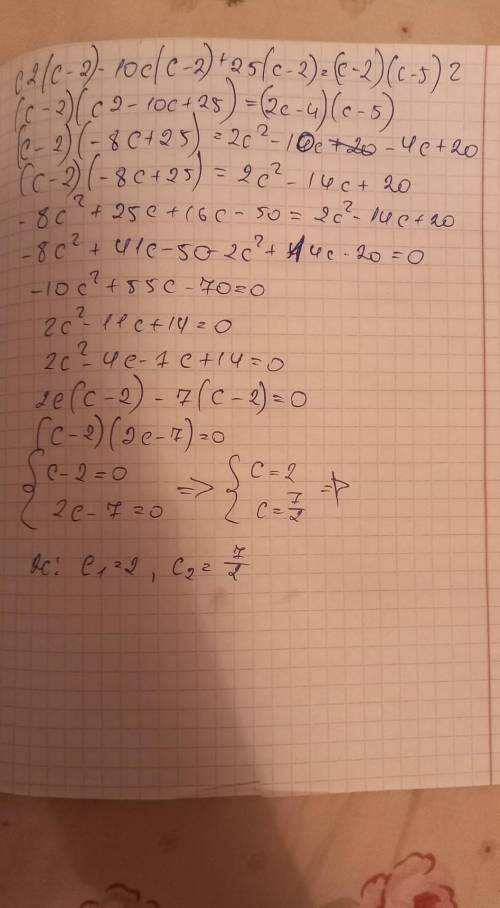 c2(c-2)-10c(c-2)+25(c-2)=(c-2)(c-5)2
(c-2)(c2-10c+25)=(2c-4)(c-5)
(c-2)(-8c+25)=2c²-10c+20-4c+20
(c-2)(-8c+25)=2c²-14c+20
-8c²+25c+16c-50=2c²-14c+20
-8c²+41c-50-2c²+14c-20=0
-10c²+55c-70=0
2c²-11c+14=0
2c²-4c-7c+14=0
2c(c-2)-7(c-2)=0
(c-2)(2c-7)=0
{c-2=0 2c-7=0 => {c=2 c=7/2 =>
c₁=2, c₂=7/2